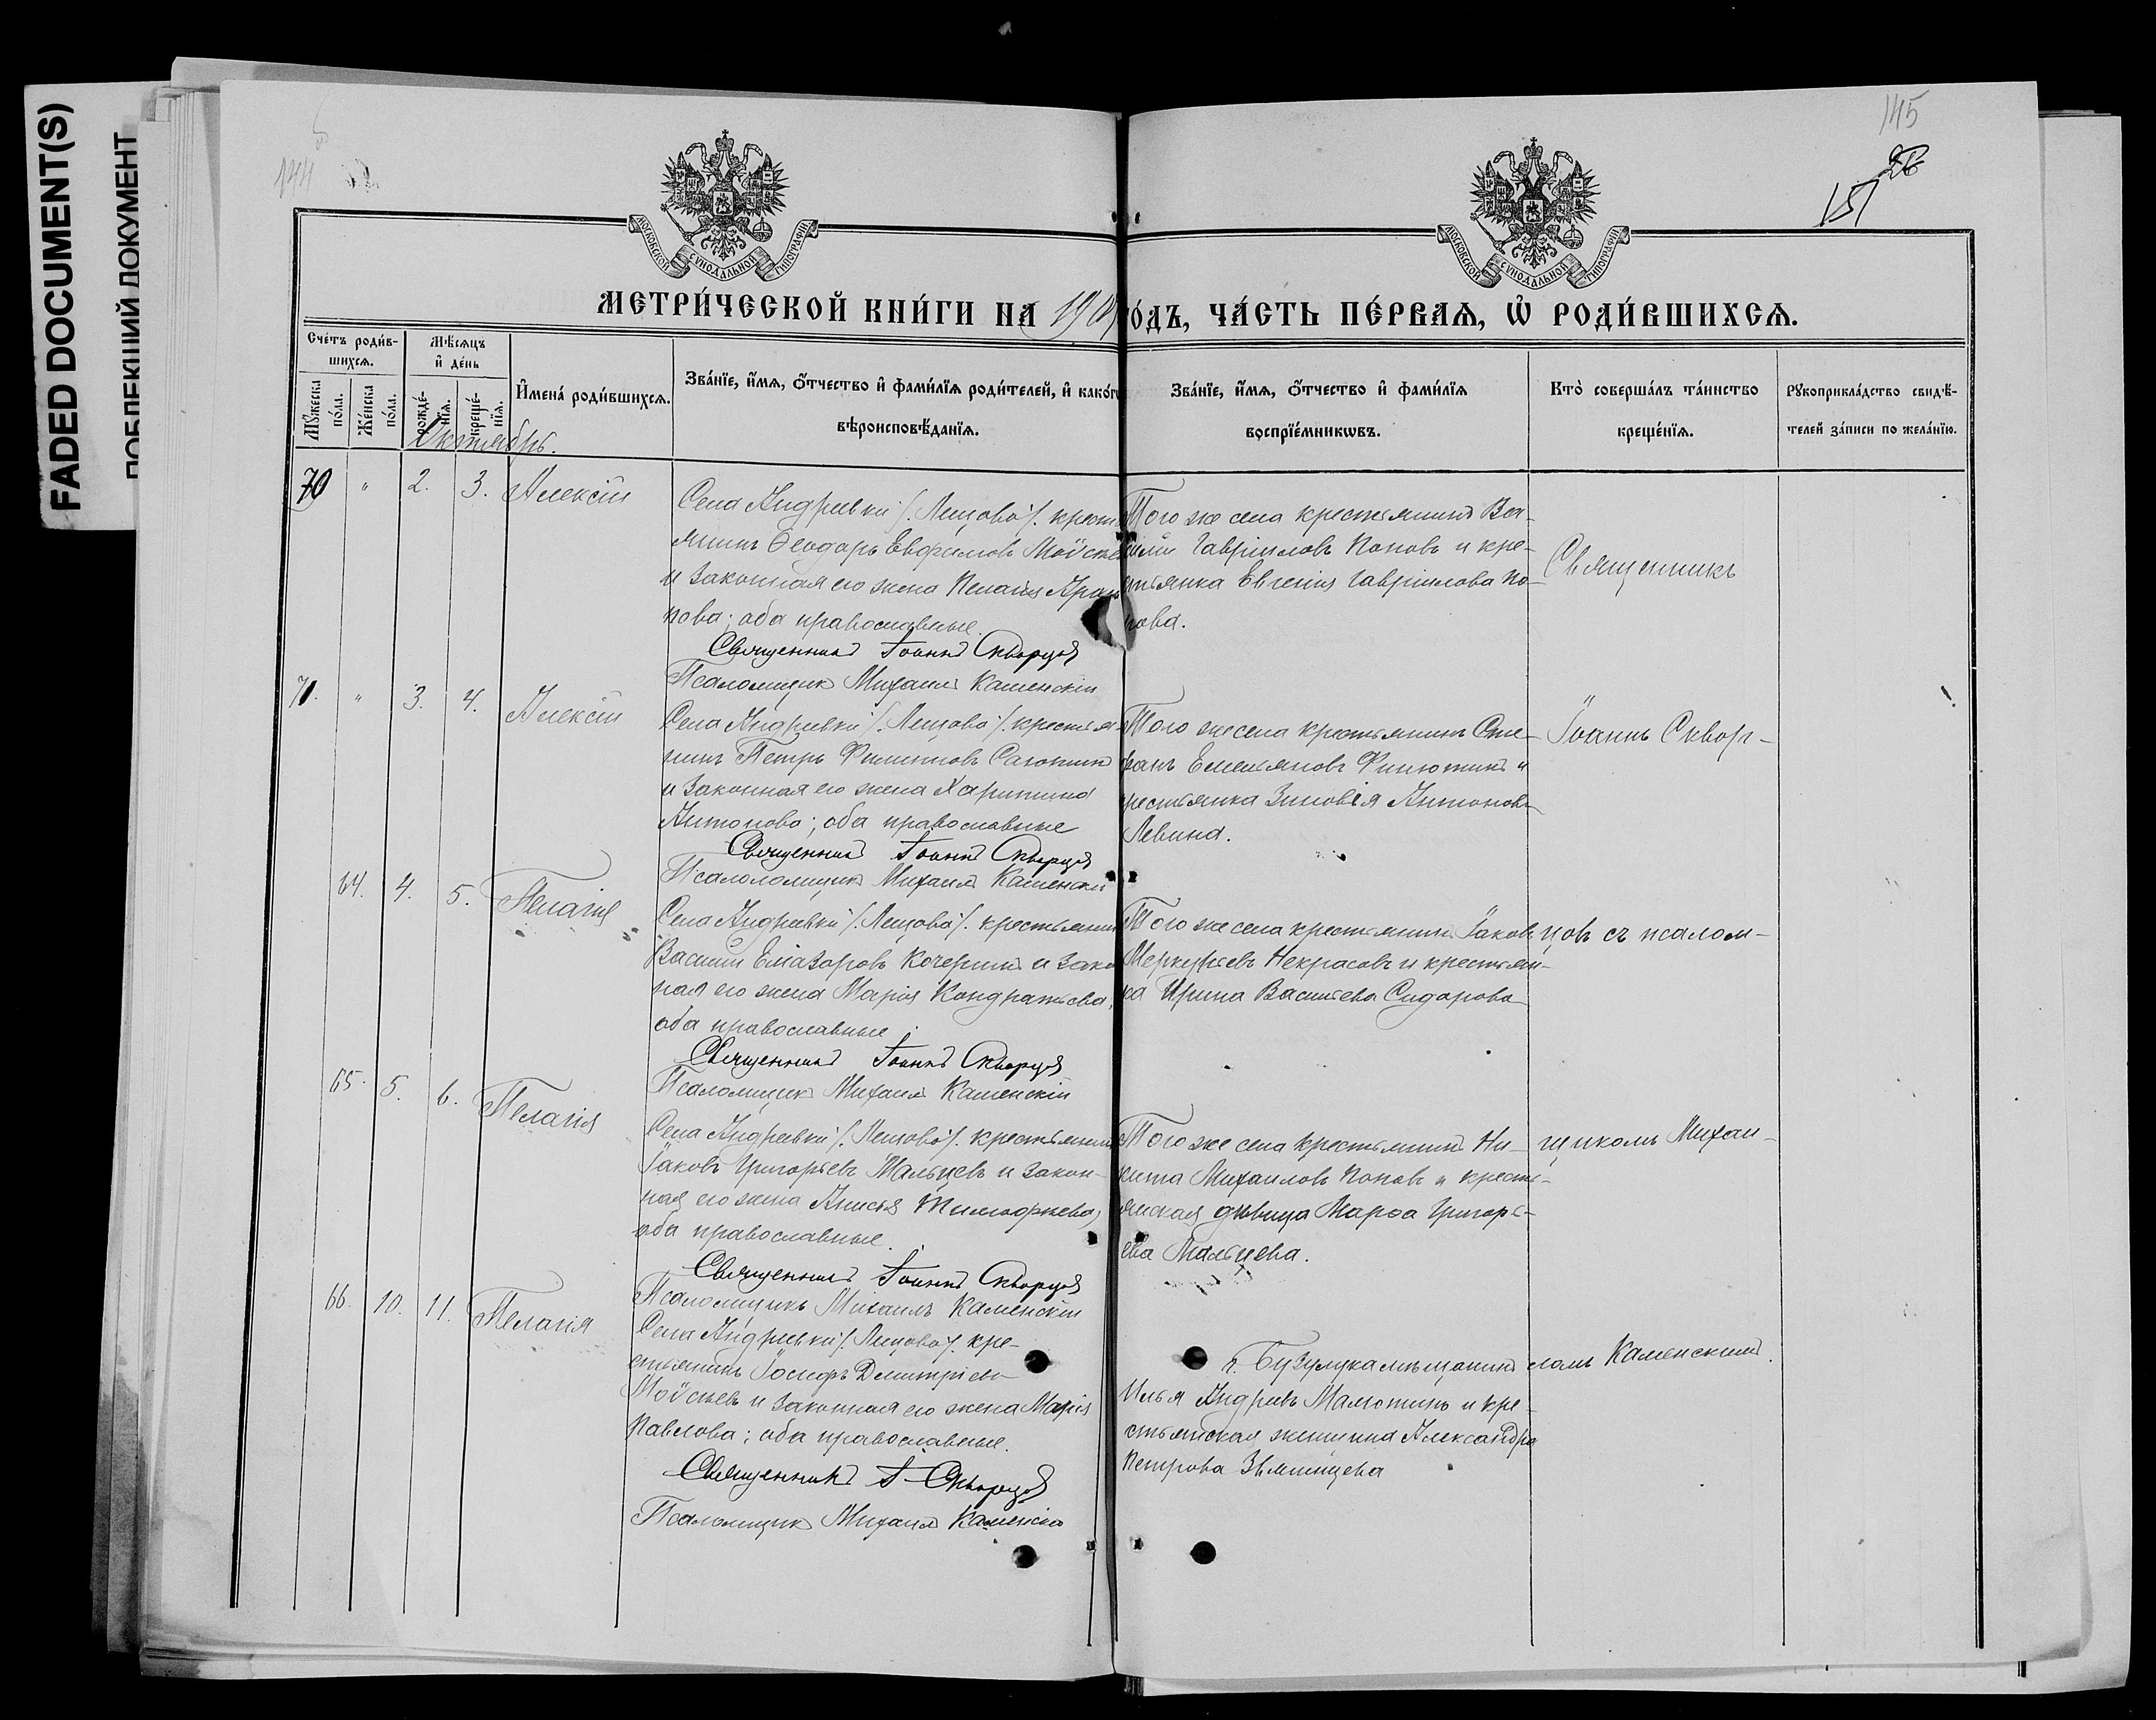 FADED DOCUMENT(S)
145
26
151
144
МОСКОВСКОЙ СѴНОДАЛЬНОЙ ТИПОГРАФІИ
МОСКОВСКОЙ СѴНОДАЛЬНОЙ ТИПОГРАФІИ
МЕТРИ́ЧЕСКОЙ КНИ́ГИ НА 190
О́ДЪ, ЧА́СТЬ ПЕ́РВАѦ, Ѡ҆ РОДИ́ВШИХСѦ.
Сче́тъ роди́в-
шихсѧ.
Мꙋ́жеска по́ла.
Же́нска по́ла.
Мѣ́сѧцъ и҆ де́нь
рожде́-нїѧ.
креще́-нїѧ.
И҆мена̀ роди́вшихсѧ.
Зва́нїе, и҆́мѧ, о҆́тчество и҆ фами́лїѧ роди́телей, и҆ како́гѡ
вѣроисповѣ́данїѧ.
Зва́нїе, и҆́мѧ, о҆́тчество и҆ фами́лїѧ
воспрїе́мникѡвъ.
Кто̀ соверша́лъ та́инство
креще́нїѧ.
Рꙋкоприкла́дство свидѣ́-
телей за́писи по жела́нїю.
Октябрь.
70 " 2. 3. Алексій
Села Андреевки /. Лещово /. крест
янинъ Ѳеодоръ Евфимовъ Мойсее
и законная его жена Пелагія Архи
пова; оба православные.
Священникъ Іоаннъ Скворцов
Псаломщикъ Михаилъ Каменскій
Того же села крестьянинъ Ва-
силій Гавріиловъ Поповъ и кре-
стьянка Евгенія Гавріилова По-
пова.
Священникъ
71. " 3. 4. Алексій
Села Андреевки /. Лещово /. крестья-
нинъ Петръ Филипповъ Сапонинъ
и законная его жена Харитина
Антонова; оба православные
Священникъ Іоаннъ Скворцов
Псалололомщикъ Михаилъ Каменскій
Того же села крестьянинъ Сте-
фанъ Емельяновъ Филютинъ и
крестьянка Зиновія Антонова
Левина.
Іоаннъ Сквор-
64. 4. 5. Пелагія
Села Андреевки /. Лещово /. крестьянин
Василій Елизаровъ Кочеринъ и закон
ная его жена Марія Кондратьева,
оба православные.
Священникъ Іоаннъ Скворцов
Псаломщикъ Михаилъ Каменскій
Того же села крестьянинъ Іаковъ
Меркурьевъ Некрасовъ и крестьян-
ка Ирина Васильева Сидорова
цовъ съ псалом-
65. 5. 6. Пелагія
Села Андреевки /. Лещово /. крестьянин
Іаковъ Григорьевъ Мальцевъ и закон-
ная его жена Анисья Тимофеева,
оба православные.
Священникъ Іоаннъ Скворцов
Псаломщикъ Михаилъ Каменскій
Того же села крестьянинъ Ни-
кита Михаиловъ Поповъ и кресть-
янская дѣвица Марѳа Григорь-
ева Мальцева.
щикомъ Михаи-
66. 10. 11. Пелагія
Села Андреевки /. Лещово /. кре-
стьянинъ Іосифъ Димитріевъ
Мойсеевъ и законная его жена Марія
Павлова; оба православные.
Священникъ І Скворцов
Псаломщикъ Михаилъ Каменскій
г. Бузулука мѣщанинъ
Илья Андреевъ Малютинъ и кре-
стьянская женщина Александра
Петрова
ломъ Каменскимъ.